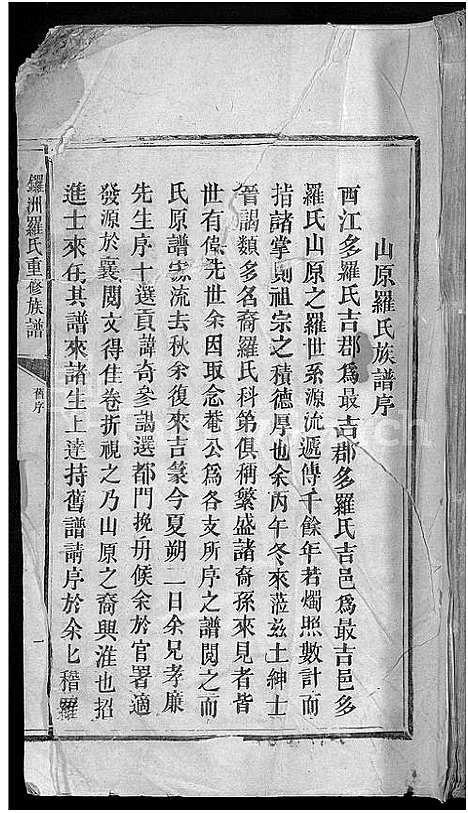 山原羅氏族譜序
西江多羅氏吉郡爲最吉郡多羅氏吉邑爲最吉邑多
羅氏山原之羅世系源流遞傳千餘年若燭照數計而
指諸掌則祖宗之積德厚也余丙午冬來蒞兹土紳士
晉謁類多名裔羅氏科第俱稱繁盛諸裔孫來見者皆
世有偉 先世余因取念菴公爲各支所序之譜閲之而
氏原譜 流去秋余復來吉篆今夏朔二日余兄孝廉
先生序十選貢諱奇參謁選都門挽舟候余於官署適
發源於襄閲文得佳卷折視之乃山原之裔興淮也招
進士來 其譜來諸生上達持舊譜請序於余 稽羅
鑼洲羅氏重修族譜
舊序
一